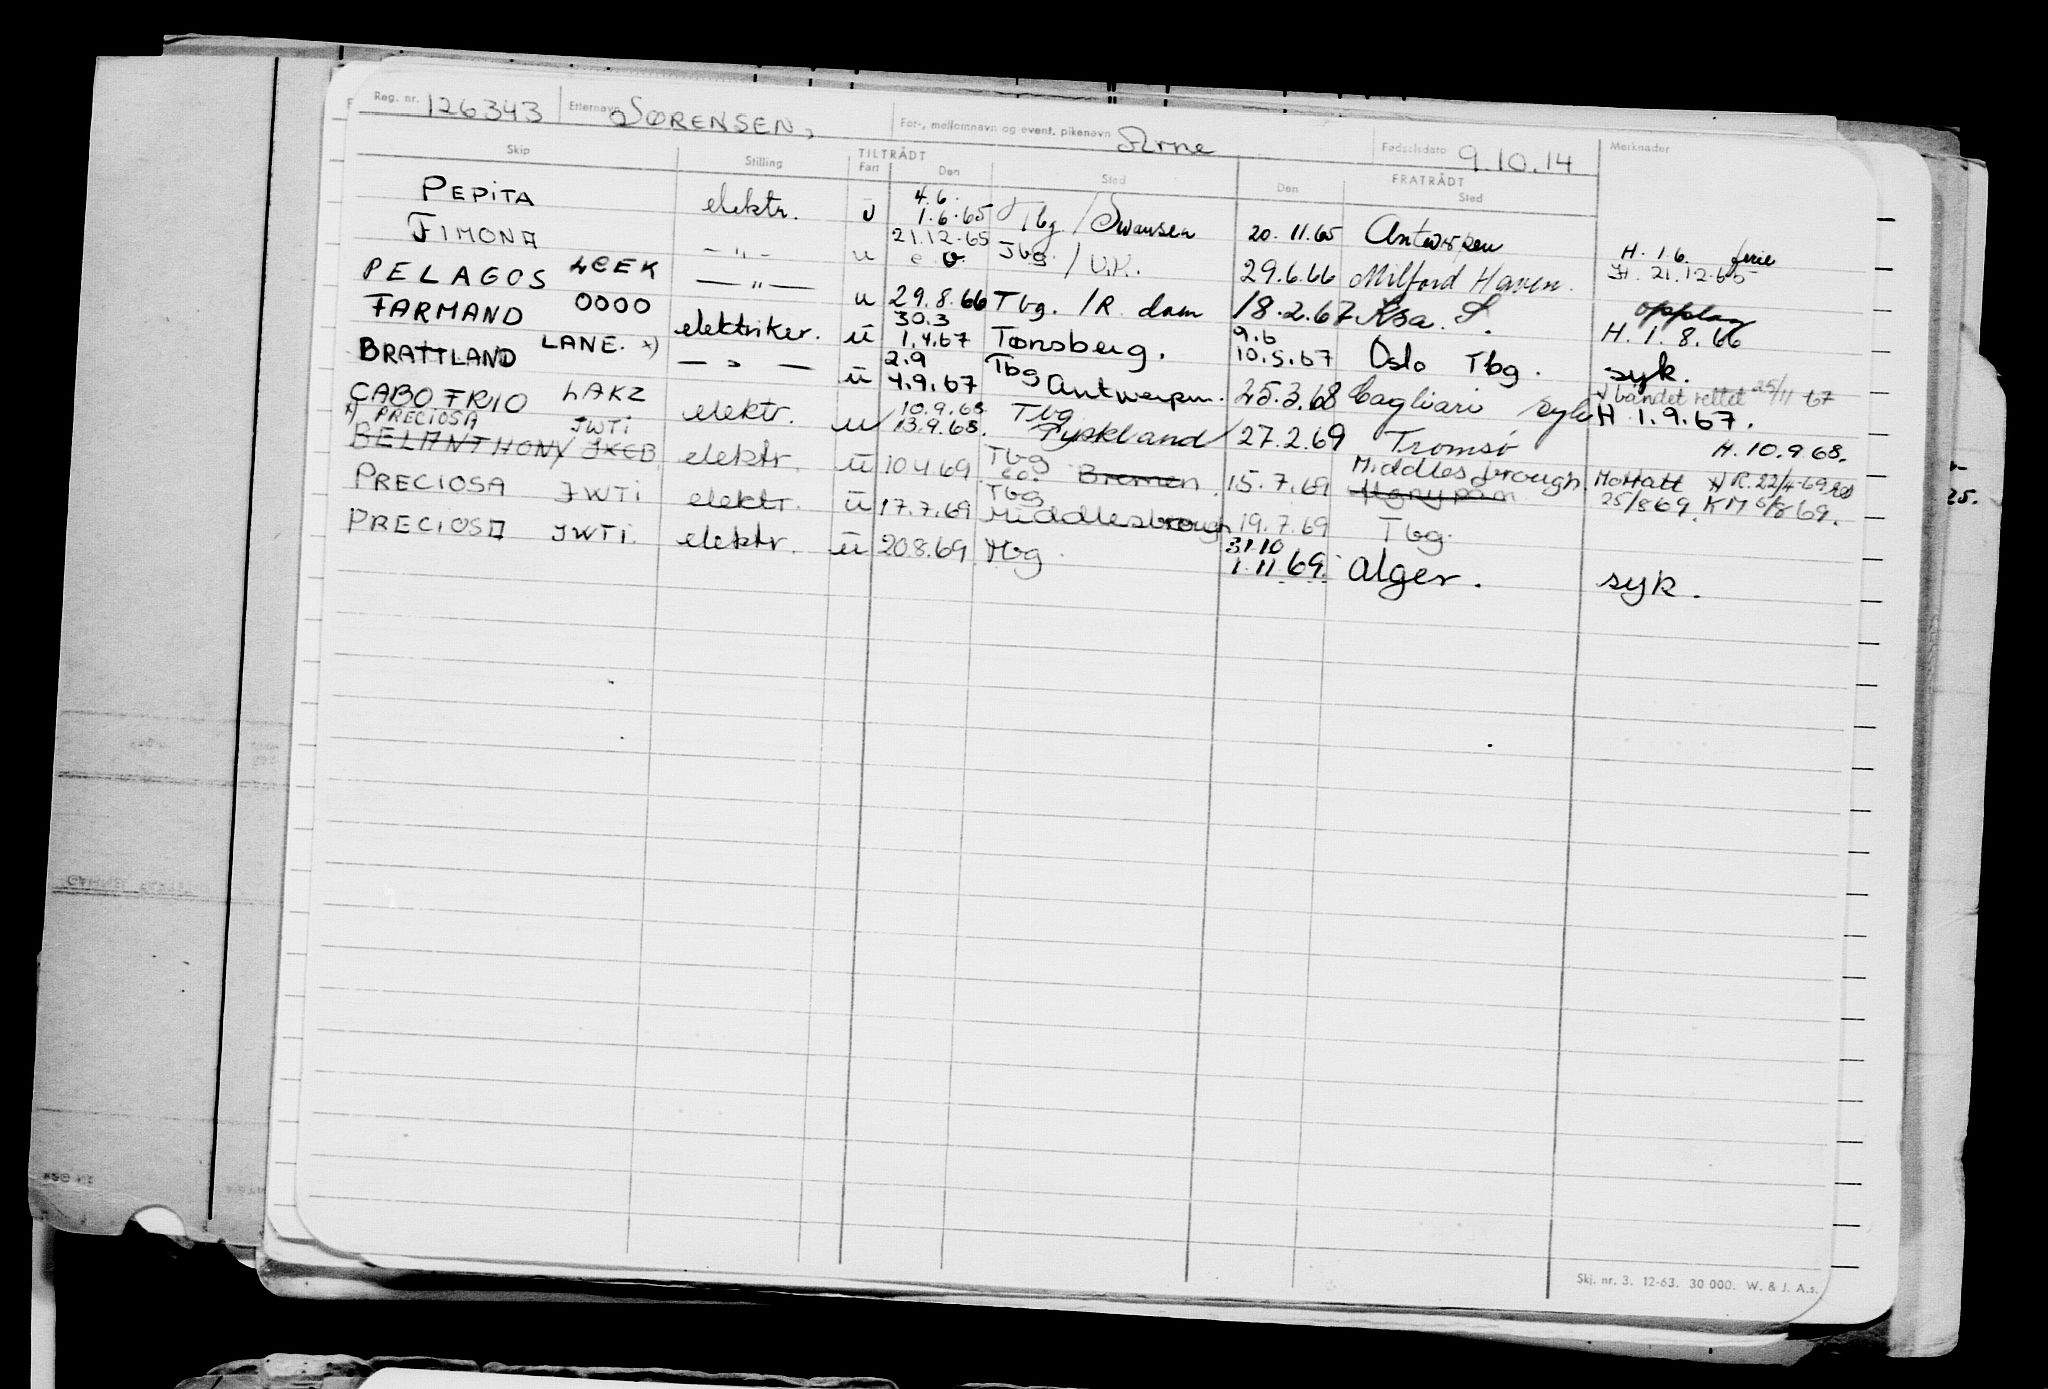 Reg. nr. 126343 Etternavn SØRENSEN, For-, mellomnavn og event. pikenavn Arne Fødselsdato 9.10.14 Merknader
Skip Stilling TILTRÅDT Fart Den Sted FRATRÅDT Den Sted
PEPITA elektr. u 4.6. 1.6.65 Tbg. / Swansea 20.11.65 Antwerpen H. 1.6. ferie
FIMONA — " — u 21.12.65 Tbg. / U.K. 29.6.66 Milford Haven. H. 21.12.65
PELAGOS LCEK — " — u 29.8.66 Tbg. / R.dam 18.2.67 opplag H. 1.8.66
FARMAND OOOO elektriker. u 30.3 1.4.67 Tønsberg. 9.6 10.5.67 Oslo Tbg. syk.
BRATTLAND LANE. x) — " — u 2.9 4.9.67 Tbg Antwerpen. 25.3.68 Cagliari syk H 1.9.67.
båndet rettet 25/11 67
CABO FRIO LAKZ elektr. u 10.9.68 13.9.68. Tbg Tyskland 27.2.69 Tromsø H. 10.9.68.
x) PRECIOSA JWTI
BELANTHONY JXCB elektr. u 10.4.69 Tbg Bremen. 15.7.69 Middlesbrough. Mottatt R. 22/4-69
PRECIOSA JWTI elektr. u 17.7.69 Tbg Middlesbrough 19.7.69 Tbg. 25/8 69. KM 5/8 69.
PRECIOSA JWTI. elektr. u 20.8.69 Tbg. 31.10 1.11.69. Alger. syk.
Skj. nr. 3. 12-63. 30 000. W. & J. A.s.